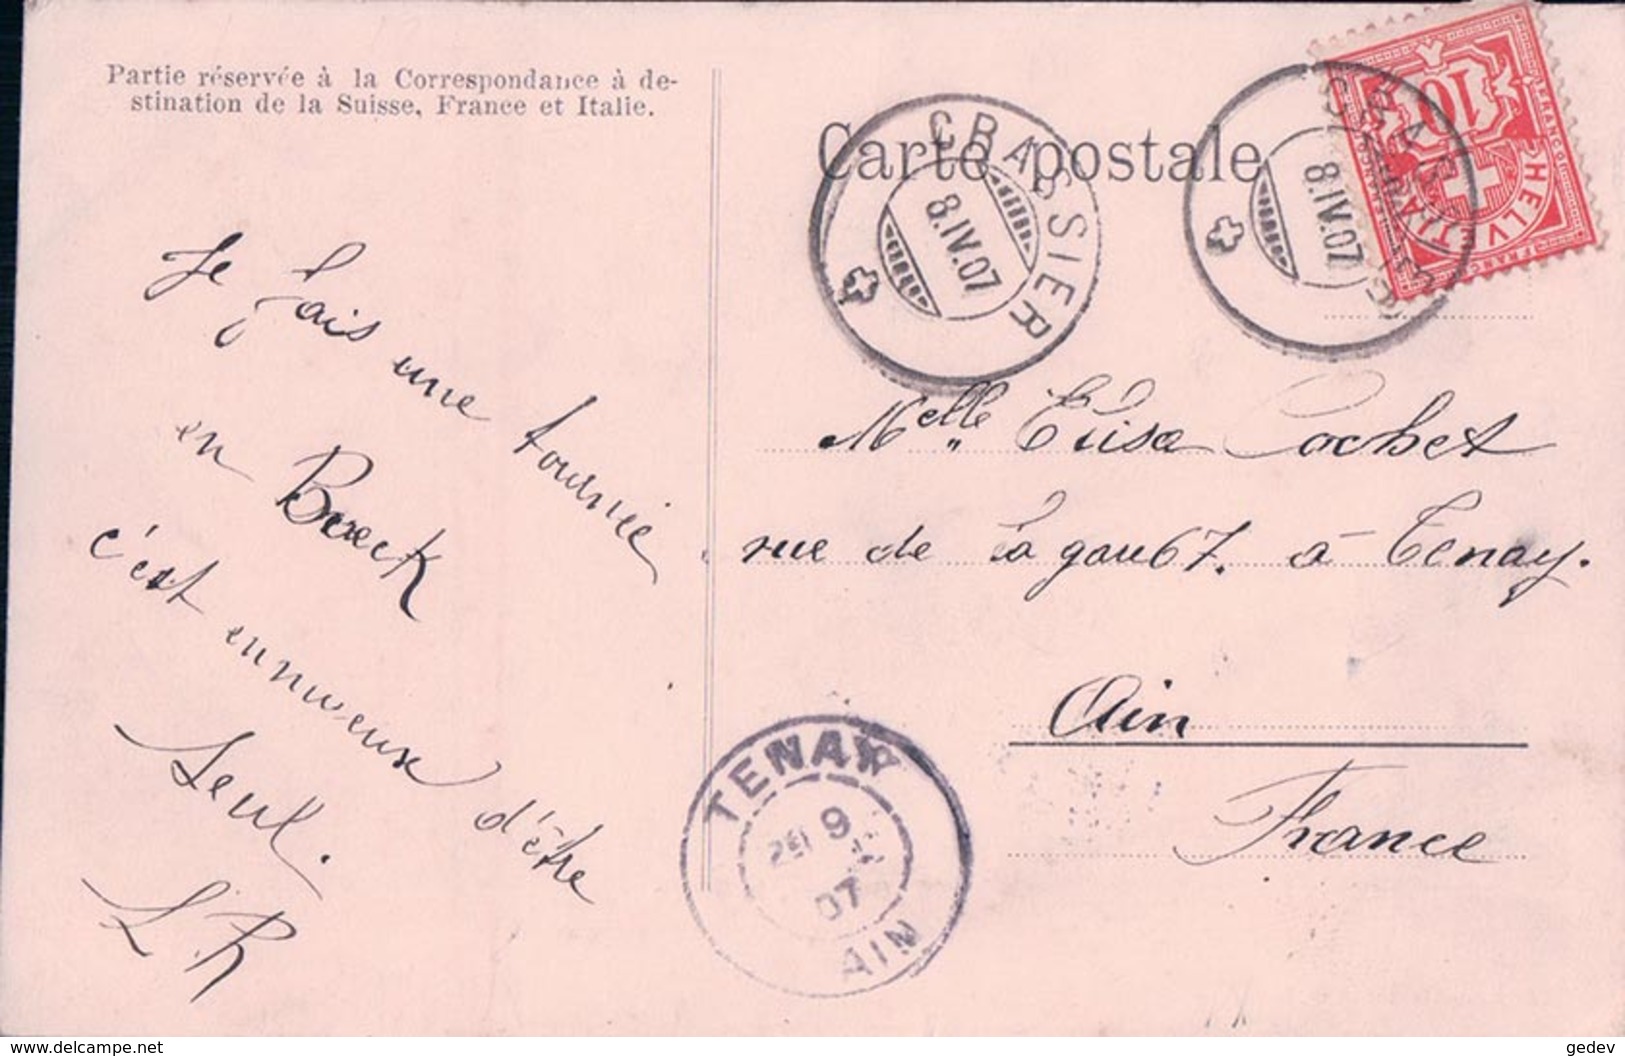 Partie réservée à la Correspondance à de-
stination de la Suisse, France et Italie.
Carte postale
CRASSIER
8.IV.07
CRASSIER
8.IV.07
10
HELVETIA
FRANCO
Je fais une tournée
en Break
c'est ennuyeux d'être
seul.
LR
Melle Elisa Cochet
rue de la gau67. à Tenay.
Ain
France
TENAY
9
07
AIN
www.delcampe.net
gedev